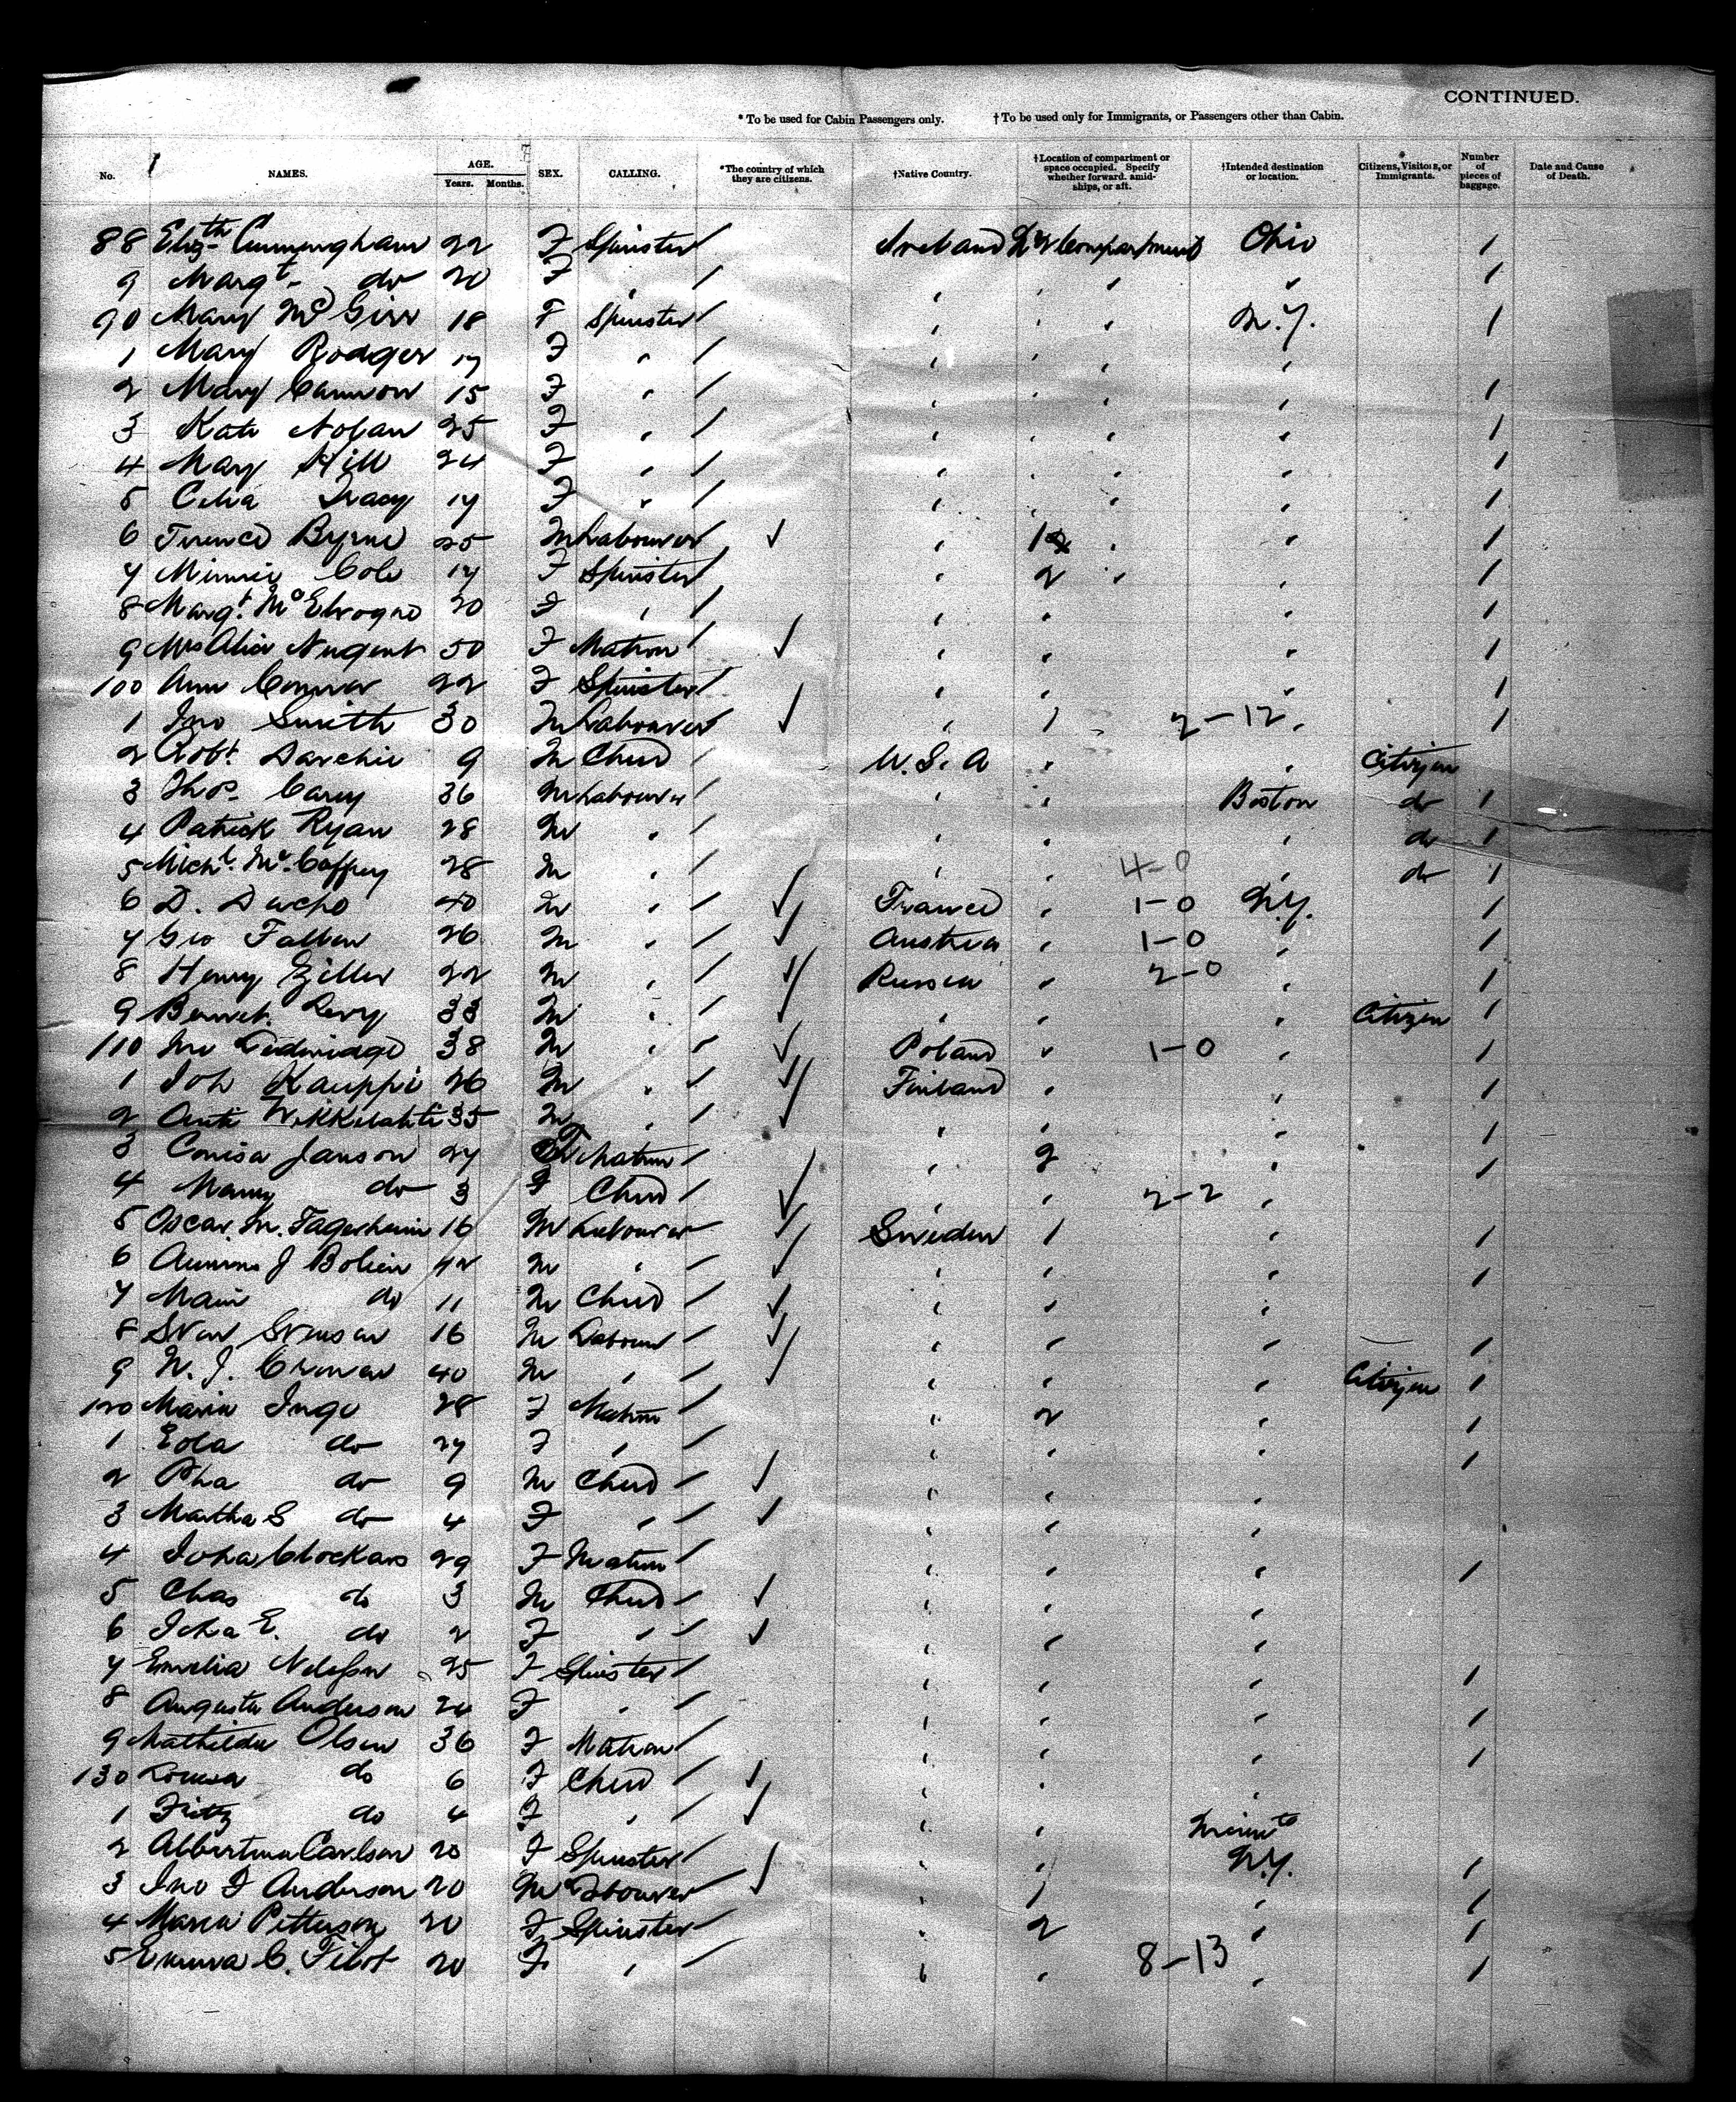 CONTINUED.
* To be used for Cabin Passengers only. † To be used only for Immigrants, or Passengers other than Cabin.
No. NAMES. AGE. Years. Months. SEX. CALLING. *The country of which they are citizens. †Native Country. †Location of compartment or space occupied. Specify whether forward, amidships, or aft. †Intended destination or location. Citizens, Visitors, or Immigrants. Number of pieces of baggage. Date and Cause of Death.
88 Elizth Cunningham 22 F Spinster / Ireland 2 Compartment Ohio 1
9 Margt do 20 F " / " " " " 1
90 Mary McGirr 18 F Spinster / " " " N.Y. 1
1 Mary Rodger 17 F " / " " " "
2 Mary Cannon 15 F " / " " " 1
3 Kate Nolan 25 F " / " " " " 1
4 Mary Hill 24 F " / " " " 1
5 Celia Tracy 17 F " / " " " 1
6 Terence Byrne 25 M Labourer / ✓ " 1 " " 1
7 Minnie Cole 17 F Spinster / " 2 " " 1
8 Margt. 20 F " / " " " 1
9 Mrs Alice Nugent 50 F Matron / ✓ " " " 1
100 Ann Connor 22 F Spinster / " " " 1
1 Jno Smith 30 M Labourer / ✓ " 1 2-12 " 1
2 Robt. 9 M Child / U.S.A " " Citizen
3 Thos. Carey 36 M Labourer / " " Boston do 1
4 Patrick Ryan 28 M " / " " " do 1
5 Michl. McCaffrey 28 M " / " " 4-0 " do 1
6 D. 40 M " / ✓ France " 1-0 N.Y. 1
7 Geo 26 M " / ✓ Austria " 1-0 " 1
8 Henry Ziller 22 M " / ✓ Russia " 2-0 " 1
9 Levy 33 M " / ✓ " " " Citizen 1
110 Jno 38 M " / ✓ Poland " 1-0 " 1
1 Joh Kauppi 26 M " / ✓ Finland " " 1
2 35 M " / ✓ " " " 1
3 Janson 27 F Matron / " 2 " 1
4 do 3 F Child / ✓ " " 2-2 "
5 Oscar M. Fagerheim 16 M Labourer / ✓ Sweden 1 " 1
6 J 42 M " / ✓ " " " 1
7 do 11 M Child / ✓ " " "
8 Sven Svenson 16 M Labourer / ✓ " " " 1
9 N. J. 40 M " / ✓ " " " Citizen 1
120 Maria Inge 28 F Matron / " 2 " 1
1 do 27 F " / " " " 1
2 do 9 M Child / ✓ " " "
3 Martha S do 4 F " / ✓ " " "
4 Clockars 29 F Matron / " " " 1
5 Chas do 3 M Child / ✓ " " "
6 E. do 2 F " / ✓ " " "
7 Emelia 25 F Spinster / " " " 1
8 Augusta Anderson 24 F " / " " " 1
9 Mathilda Olsen 36 F Matron / " " " 1
130 Louisa do 6 F Child / ✓ " " "
1 Fritz do 4 F " / ✓ " "
2 Albertina Carlson 20 F Spinster / ✓ " " N.Y. 1
3 Jno F Anderson 20 M Labourer / ✓ " 1 " 1
4 Maria Petterson 20 F Spinster / " 2 " 1
5 Emma C. 20 F " / " " 8-13 " 1